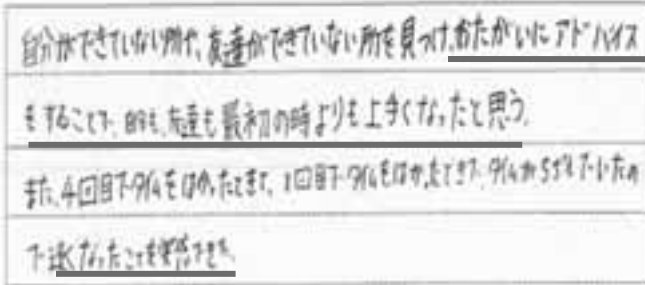 自分ができていない所や、友達ができていない所を見つけ、おたがいにアドバイス
をすることで、自分も、友達も最初の時よりも上手くなったと思う。
また、4回目でタイムをはかったときと、1回目でタイムをはかったときで、タイムが5びょう
で速くなったことを実感できた。